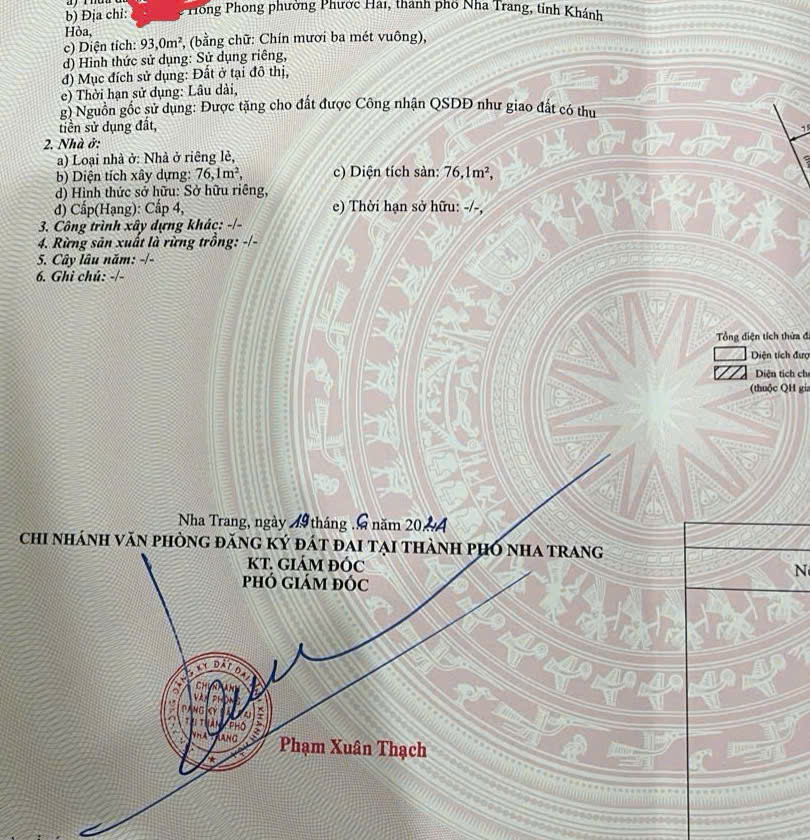 b) Địa chỉ: Hồng Phong phường Phước Hải, thành phố Nha Trang, tỉnh Khánh
Hòa,
c) Diện tích: 93,0m², (bằng chữ: Chín mươi ba mét vuông),
d) Hình thức sử dụng: Sử dụng riêng,
đ) Mục đích sử dụng: Đất ở tại đô thị,
e) Thời hạn sử dụng: Lâu dài,
g) Nguồn gốc sử dụng: Được tặng cho đất được Công nhận QSDĐ như giao đất có thu
tiền sử dụng đất,
2. Nhà ở:
a) Loại nhà ở: Nhà ở riêng lẻ,
b) Diện tích xây dựng: 76,1m², c) Diện tích sàn: 76,1m²,
d) Hình thức sở hữu: Sở hữu riêng,
đ) Cấp(Hạng): Cấp 4, e) Thời hạn sở hữu: -/-,
3. Công trình xây dựng khác: -/-
4. Rừng sản xuất là rừng trồng: -/-
5. Cây lâu năm: -/-
6. Ghi chú: -/-
Tổng diện tích thửa
Diện tích
Diện tích
(thuộc QH
Nha Trang, ngày 19 tháng năm 20
CHI NHÁNH VĂN PHÒNG ĐĂNG KÝ ĐẤT ĐAI TẠI THÀNH PHỐ NHA TRANG
KT. GIÁM ĐỐC
PHÓ GIÁM ĐỐC
CHI NHÁNH
VĂN PHÒNG
ĐĂNG KÝ
THÀNH PHỐ
NHA TRANG
Phạm Xuân Thạch